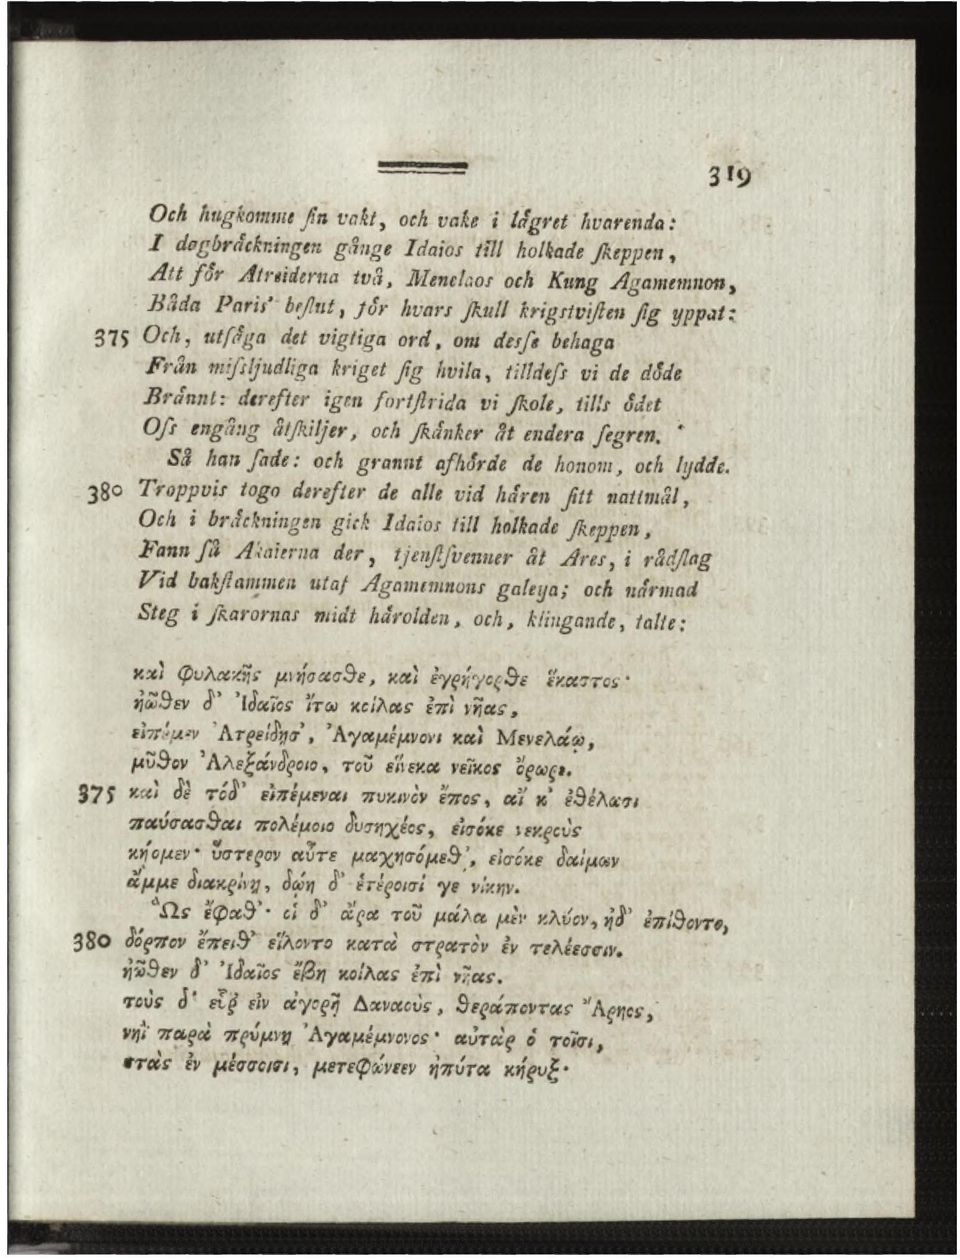 319
Och hugkomme ſin vakt, och vake i lågret hvarenda:
I dagbråckningen gånge Idaios till holkade ſkeppen,
Att fôr Atreiderna två, Menelaos och Kung Agamemnon,
Båda Paris' beſlut, fôr hvars ſkull krigstviſten ſig yppat:
375 Och, utſåga det vigtiga ord, om desſe behaga
Från miſsljudliga kriget ſig hvila, tilldeſs vi de dôde
Brånnt: derefter igen fortſtrida vi ſkole, tills ôdet
Oſs engång åtſkiljer, och ſkånker åt endera ſegren.
Så han ſade: och grannt afhôrde de honom, och lydde.
380 Troppvis togo derefter de alle vid håren ſitt nattmål,
Och i bråckningen gick Idaios till holkade ſkeppen,
Fann ſå Akaierna der, tjenſtſvenner åt Ares, i rådſlag
Vid bakſtammen utaf Agamemnons galeya; och nårmad
Steg i ſkarornas midt hårolden, och, klingande, talte:
καὶ φυλακῆς μνήσασθε, καὶ ἐγρήγορθε ἕκαστος·
ἠῶθεν δ' Ἰδαῖος ἴτω κοίλας ἐπὶ νῆας,
εἰπέμεν Ἀτρείδῃσ', Ἀγαμέμνονι καὶ Μενελάῳ,
μῦθον Ἀλεξάνδροιο, τοῦ εἵνεκα νεῖκος ὄρωρε.
375 καὶ δὲ τόδ' εἰπέμεναι πυκινὸν ἔπος, αἴ κ' ἐθέλωσι
παύσασθαι πολέμοιο δυσηχέος, εἰσόκε νεκροὺς
κήομεν· ὕστερον αὖτε μαχησόμεθ', εἰσόκε δαίμων
ἄμμε διακρίνῃ, δώῃ δ' ἑτέροισί γε νίκην.
Ὣς ἔφαθ'· οἱ δ' ἄρα τοῦ μάλα μὲν κλύον, ἠδ' ἐπίθοντο,
380 δόρπον ἔπειθ' εἵλοντο κατὰ στρατὸν ἐν τελέεσσιν.
ἠῶθεν δ' Ἰδαῖος ἔβη κοίλας ἐπὶ νῆας.
τοὺς δ' εὗρ' εἰν ἀγορῇ Δαναοὺς, θεράποντας Ἄρηος,
νηῒ παρὰ πρύμνῃ Ἀγαμέμνονος· αὐτὰρ ὁ τοῖσι,
στὰς ἐν μέσσοισι, μετεφώνεεν ἠπύτα κήρυξ·